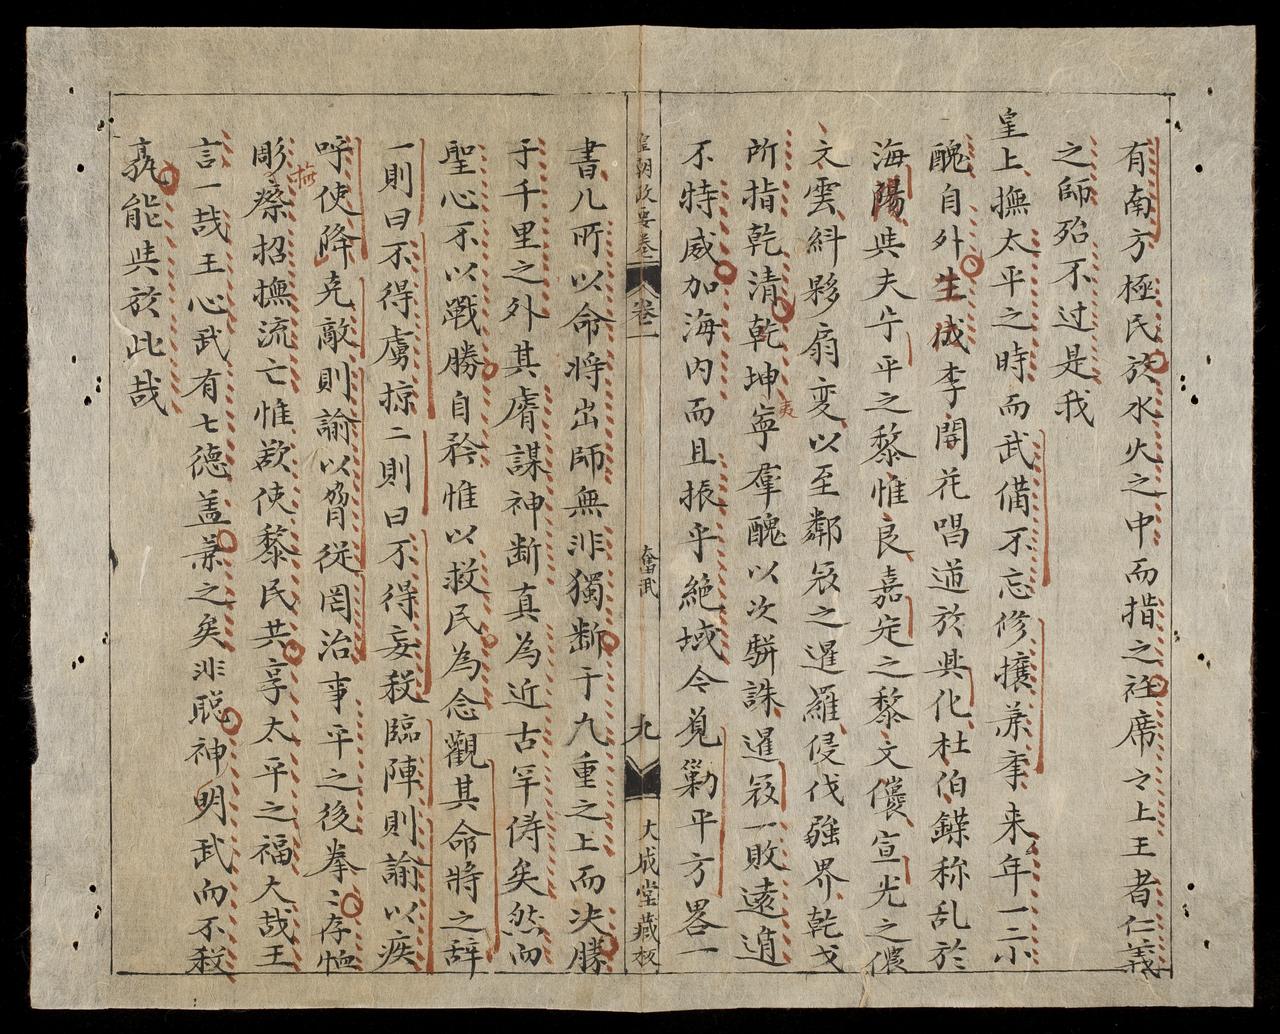 有南方極民於水火之中而指之衽席之上王者仁義
之師殆不过是我
皇上撫太平之時而武備不忘修攘兼来年一二小
醜自外生成李開花唱道於興化杜伯鐷称乱於
海陽与夫乍平之黎惟良嘉定之黎文儴宣光之儂
文雲斜夥扇変以至鄰㓂之暹羅侵伐強界乾戈
所指乾清乾坤寧羣醜以次駢誅暹㓂一敗遠遁
不特威加海内而且振乎絶域今見勦平方畧一
皇朝政要卷 卷二 奮武 九 大成堂藏板
書凡所以命将出師無非獨断于九重之上而决勝
于千里之外其膚謀神断真為近古罕儔矣然而
聖心不以戰勝自矜惟以救民為念觀其命將之辞
一則曰不得虜掠二則曰不得妄殺臨陣則諭以疾
呼使降克敵則諭以脅從罔治事平之後拳〻存恤
彫瘵招撫流亡惟欲使黎民共享太平之福大哉王
撫
夷
言一哉王心武有七德盖兼之矣非聪神明武而不殺
孰能與於此哉